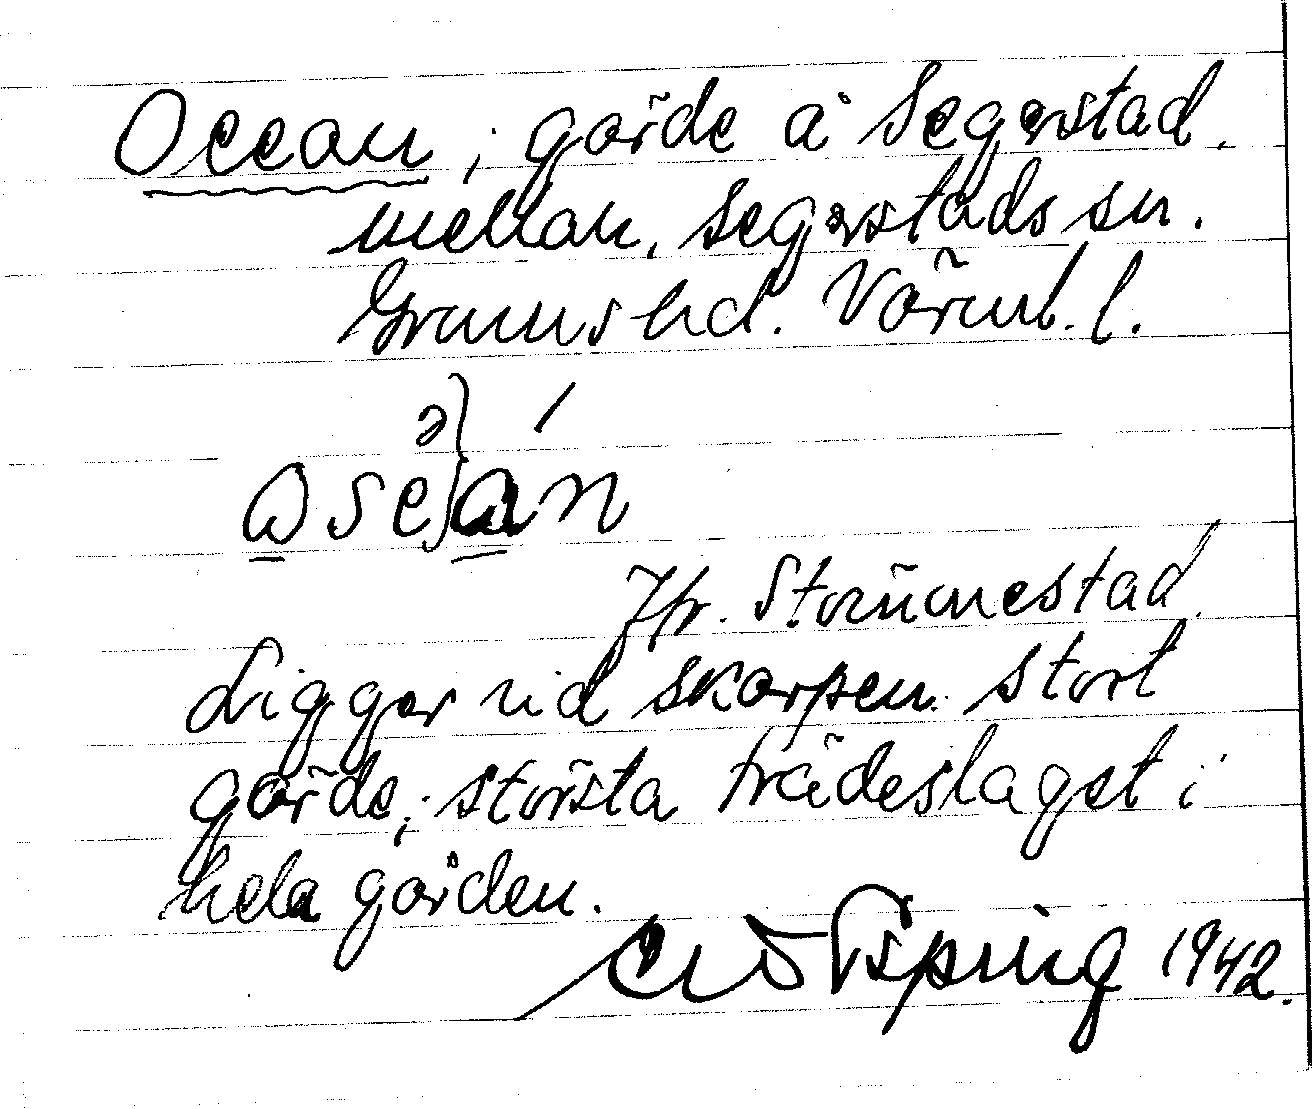 Ocean, gärde å Segerstad
mellan, Segerstads sn.
Grums hd. Värml. l.
ə
oseán
Jfr. Strömmestad.
Ligger vid skarpen. Stort
gärde, största trädeslaget i
hela gården.
1942.